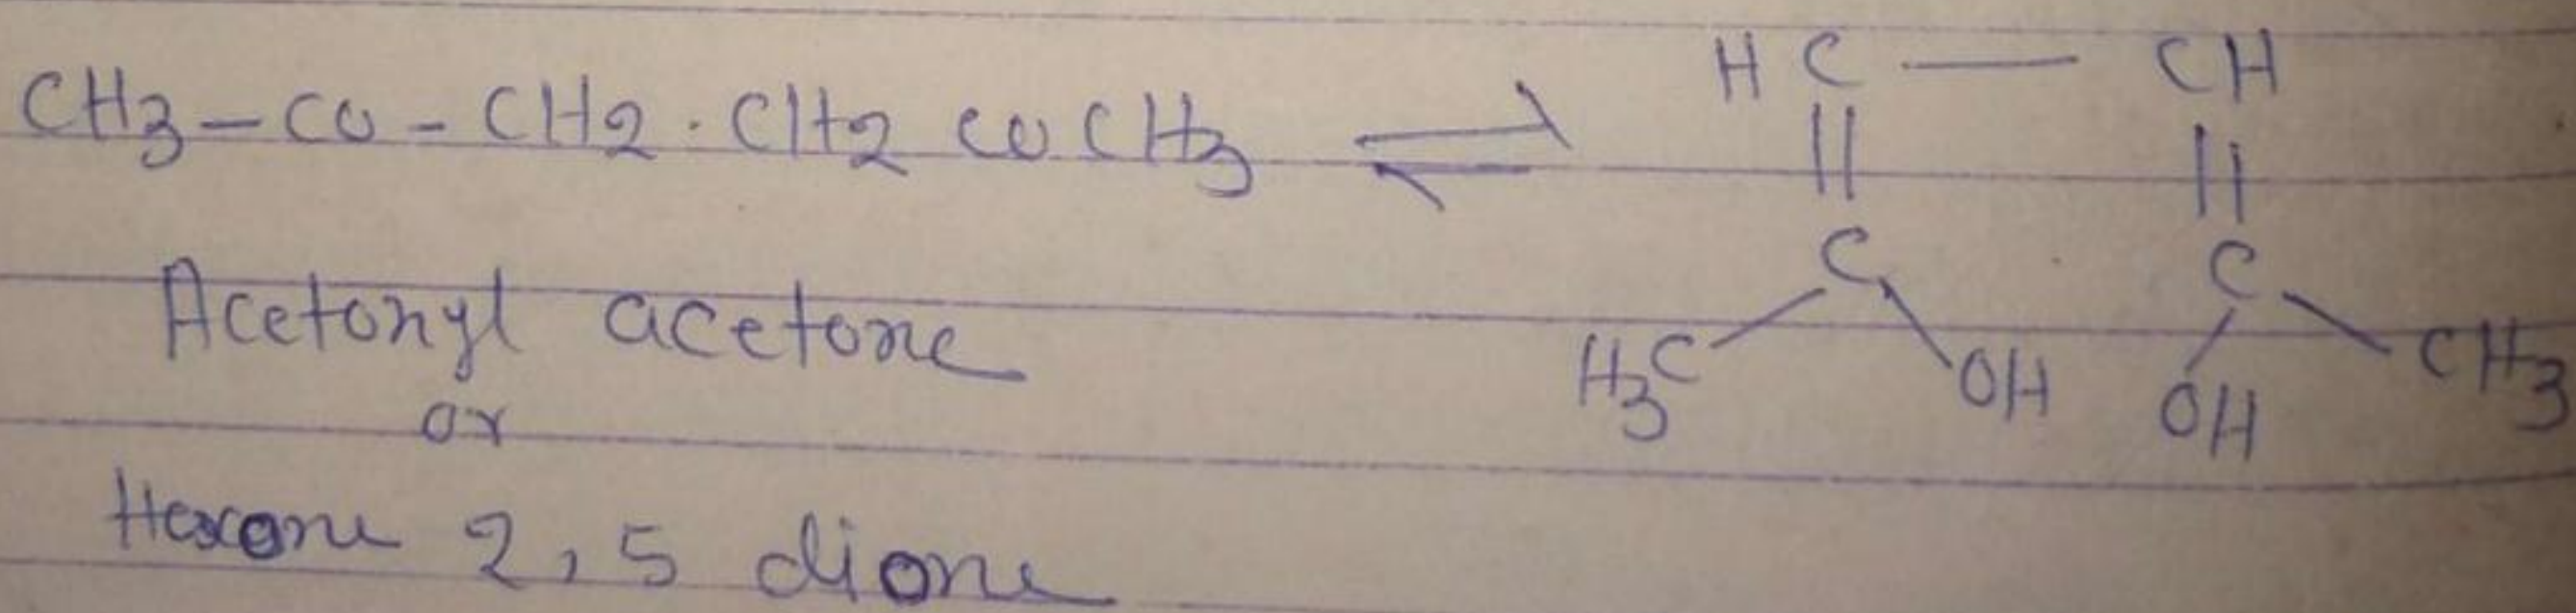 CH3-CO-CH2·CH2 CO CH3 ⇌ HC — CH
|| ||
C C
H3C OH OH CH3
Acetonyl acetone
or
Hexane 2,5 dione